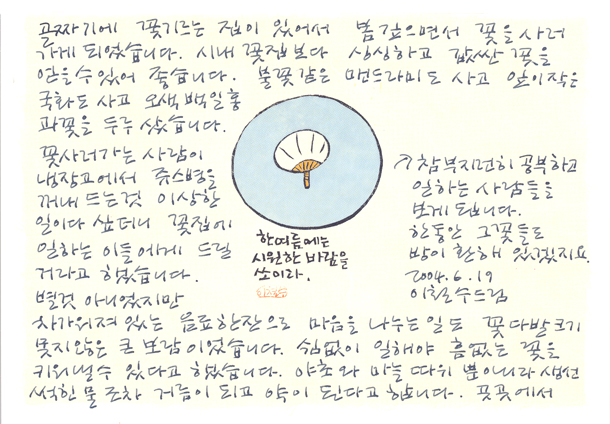 골짜기에 꽃기르는 집이 있어서 봄 깊으면서 꽃을 사러
가게 되었습니다. 시내 꽃집보다 싱싱하고 값싼 꽃을
얻을수 있어 좋습니다. 불꽃같은 맨드라미도 사고 알이작은
국화도 사고 오색 백일홍
과꽃을 두루 샀습니다.
꽃사러가는 사람이
냉장고에서 쥬스병을
꺼내 드는것 이상한
일이다 싶더니 꽃집에
일하는 이들에게 드릴
거라고 했습니다.
별것 아니였지만
차가워져 있는 음료한잔으로 마음을 나누는일도 꽃다발크기
못지않은 큰 보람이었습니다. 쉼없이 일해야 흠없는 꽃을
키워낼수 있다고 했습니다. 야초와 마늘 따위 뿐아니라 생선
썩힌 물 조차 거름이 되고 약이 된다고 합니다. 곳곳에서
참 부지런히 공부하고
일하는 사람들을
보게 됩니다.
한동안 그꽃들로
방이 환해 있겠지요.
2004.6.19
이철수드림
한여름에는
시원한 바람을
쏘이라.